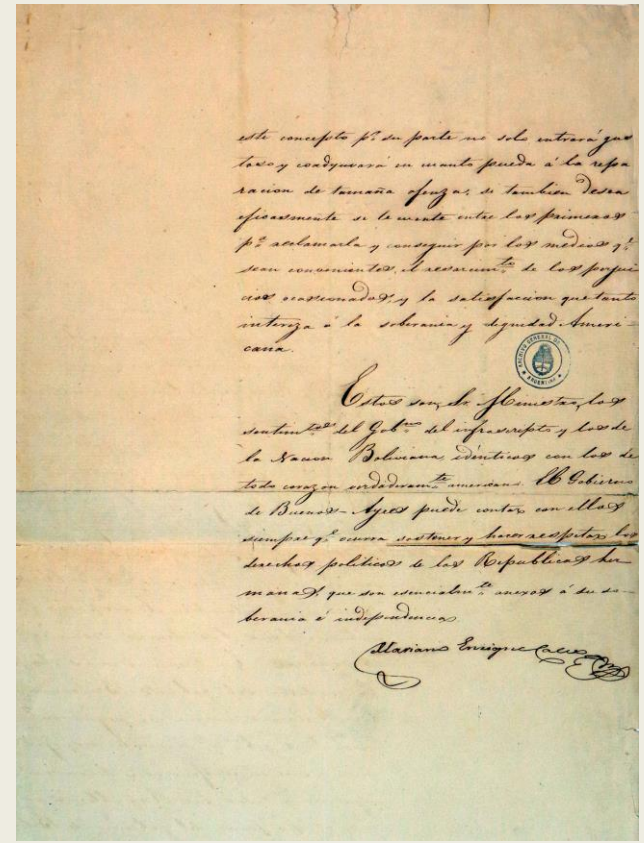 este concepto pr. su parte no solo entrará gus
toso y coadyuvará en cuanto pueda á la repa
racion de tamaña ofenza, se tambien desea
eficasmente se le cuente entre los primeros
pa. reclamarla y conseguir por los medios qe.
sean convenientes, el resarcimto. de los perjui
cios ocasionados, y la satisfaccion que tanto
intereza á la soberania y dignidad Ameri
cana.
ARCHIVO GENERAL DE
ARGENTINA
Estos son, Sr. Ministro, los
sentimtos. del Gobno. del infrascripto y los de
la Nacion Boliviana idénticos con los de
todo corazón verdaderamte. americano. El Gobierno
de Buenos-Ayres puede contar con ellos
siempre qe. ocurra sostener y hacer respetar los
derechos politicos de las Republicas her
manas, que son esencialmte. anexos á su so-
berania é independencia
Mariano Enrique Calvo